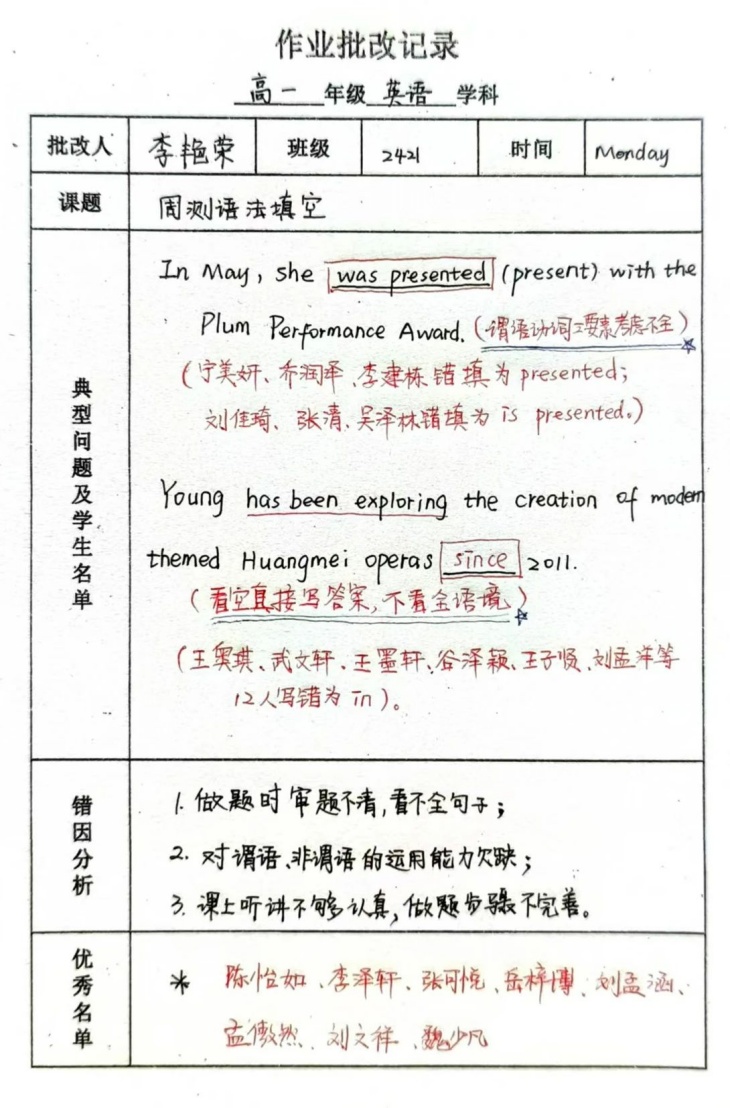 作业批改记录
高一 年级 英语 学科
批改人 李艳荣 班级 2421 时间 Monday
课题 周测语法填空
典型问题及学生名单
In May, she was presented (present) with the
Plum Performance Award. (谓语动词三要素考虑不全)
(宁美妍、乔润泽、李建栋错填为 presented;
刘佳琦、张清、吴泽林错填为 is presented。)
Young has been exploring the creation of modern
themed Huangmei operas since 2011.
(看空直接写答案,不看全语境)
(王奥琪、武文轩、王墨轩、谷泽颖、王子贤、刘孟洋等
12人写错为 in)。
错因分析
1. 做题时审题不清,看不全句子;
2. 对谓语、非谓语的运用能力欠缺;
3. 课上听讲不够认真,做题步骤不完善。
优秀名单
* 陈怡如、李泽轩、张可悦、岳梓博、刘孟涵、
孟傲然、刘文祥、魏少凡